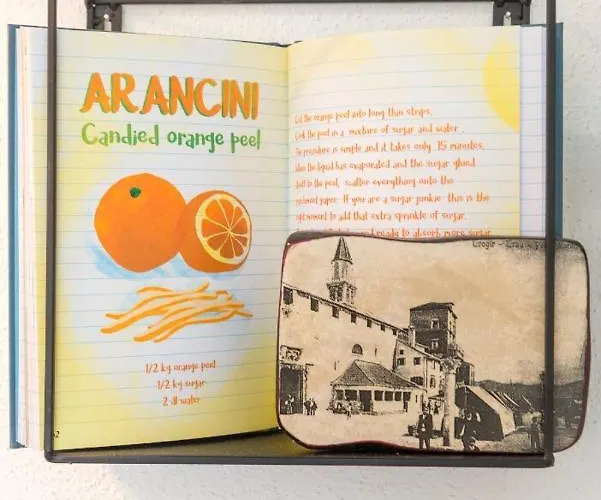 ARANCINI
Candied orange peel
1/2 kg orange peel
1/2 kg sugar
2 dl water
Cut the orange peel into long thin strips.
Cook the peel in a mixture of sugar and water.
The procedure is simple and it takes only 15 minutes.
When the liquid has evaporated and the sugar glued
itself to the peel, scatter everything onto the
parchment paper. If you are a sugar junkie this is the
right moment to add that extra sprinkle of sugar.
and ready to absorb more sugar
Trogir -